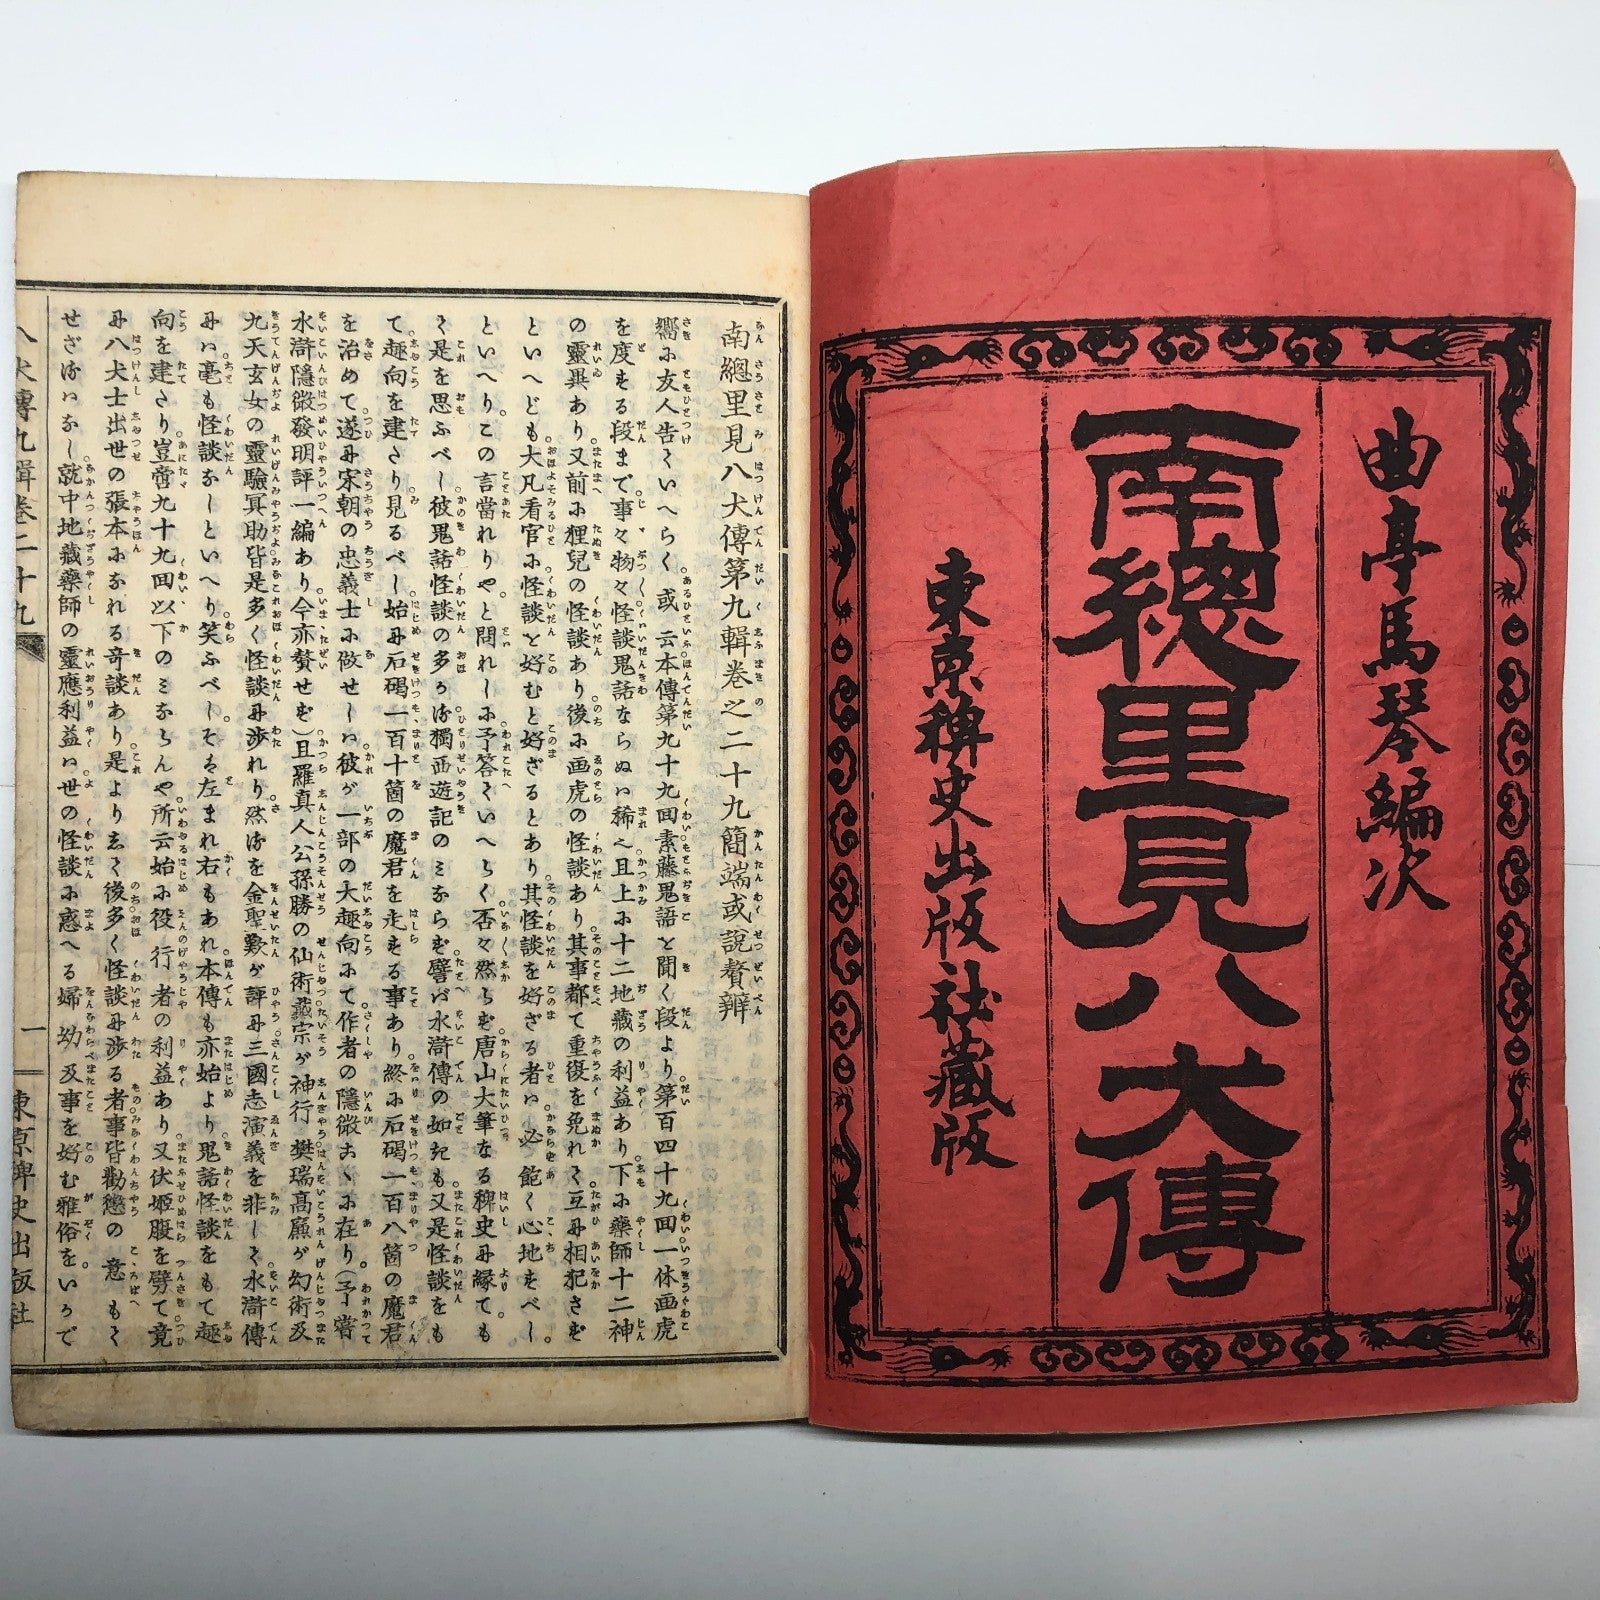 曲亭馬琴編次
南總里見八犬傳
東京稗史出版社藏版
南總里見八犬傳第九輯卷之二十九簡端或說贅辯
嚮に友人告ていへらく或云本傳第九十九回素藤鬼語を聞く段より第百四十九回一休画虎
を度する段まで事々物々怪談鬼話ならぬハ稀也且上に十二地藏の利益あり下に藥師十二神
の靈異あり又前に狸兒の怪談あり後に画虎の怪談あり其事都て重復を免れて互に相犯さず
といへども大凡看官に怪談を好むと好ざるとあり其怪談を好ざる者ハ必飽く心地すべし
といへりこの言當れりやと問れしに予答ていへらく否々然らず唐山大筆なる稗史に縁ても
て是を思ふべし彼鬼話怪談の多かるハ獨西遊記のミならず譬バ水滸傳の如きも又是怪談をも
て趣向を建たり見るべし始に石碣一百十箇の魔君を走する事あり終に石碣一百八箇の魔君
を治めて遂に宋朝の忠義士に做せしハ彼が一部の大趣向にて作者の隱微おくに在り(予嘗
水滸隱微發明評一編あり今亦贅せず)且羅真人公孫勝の仙術戴宗が神行樊瑞髙廉が幻術及
九天玄女の靈驗冥助皆是多く怪談に渉れり然るを金聖歎が評に三國志演義を非して水滸傳
にハ毫も怪談なしといへり笑ふべしそハ左まれ右もあれ本傳も亦始より鬼話怪談をもて趣
向を建たり豈啻九十九回以下のミならんや所云始に役行者の利益あり又伏姬腹を劈て竟
に八犬士出世の張本になれる奇談あり是よりして後多く怪談に渉る者事皆勸懲の意もて
せざるハなし就中地藏藥師の靈應利益ハ世の怪談に惑へる婦幼及事を好む雅俗をいかで
八犬傳九輯卷二十九
一
東京稗史出版社